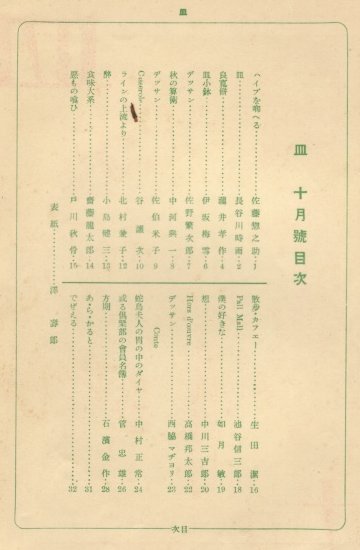 皿
皿 十月號目次
パイプを喞へる……佐藤惣之助・1
皿……長谷川時雨・2
良寛餅……瀧井孝作・4
皿小鉢……伊坂梅雪・6
デッサン……佐野繁次郎・7
秋の算術……中河與一・8
デッサン……佐伯米子・9
Casserole……谷讓次・10
ラインの上流より……北村兼子・12
酢……小島健三・13
食味大系……齋藤龍太郎・14
惡もの喰ひ……戸川秋骨・15
表紙……澤 壽郎
散歩・カフェー……生田潔・16
Pall Mall……池谷信三郎・18
僕の好きな……如月敏・19
想……中川三吉郎・20
Hors d'oeuvre……高橋邦太郎・22
デッサン……西脇マヂヨリ・23
Conte
蛇島夫人の閨の中のダイヤ……中村正常・24
或る倶樂部の會員名簿……菅忠雄・26
方則……石濱金作・28
あ・ら・かると……31
でざえる……32
目次